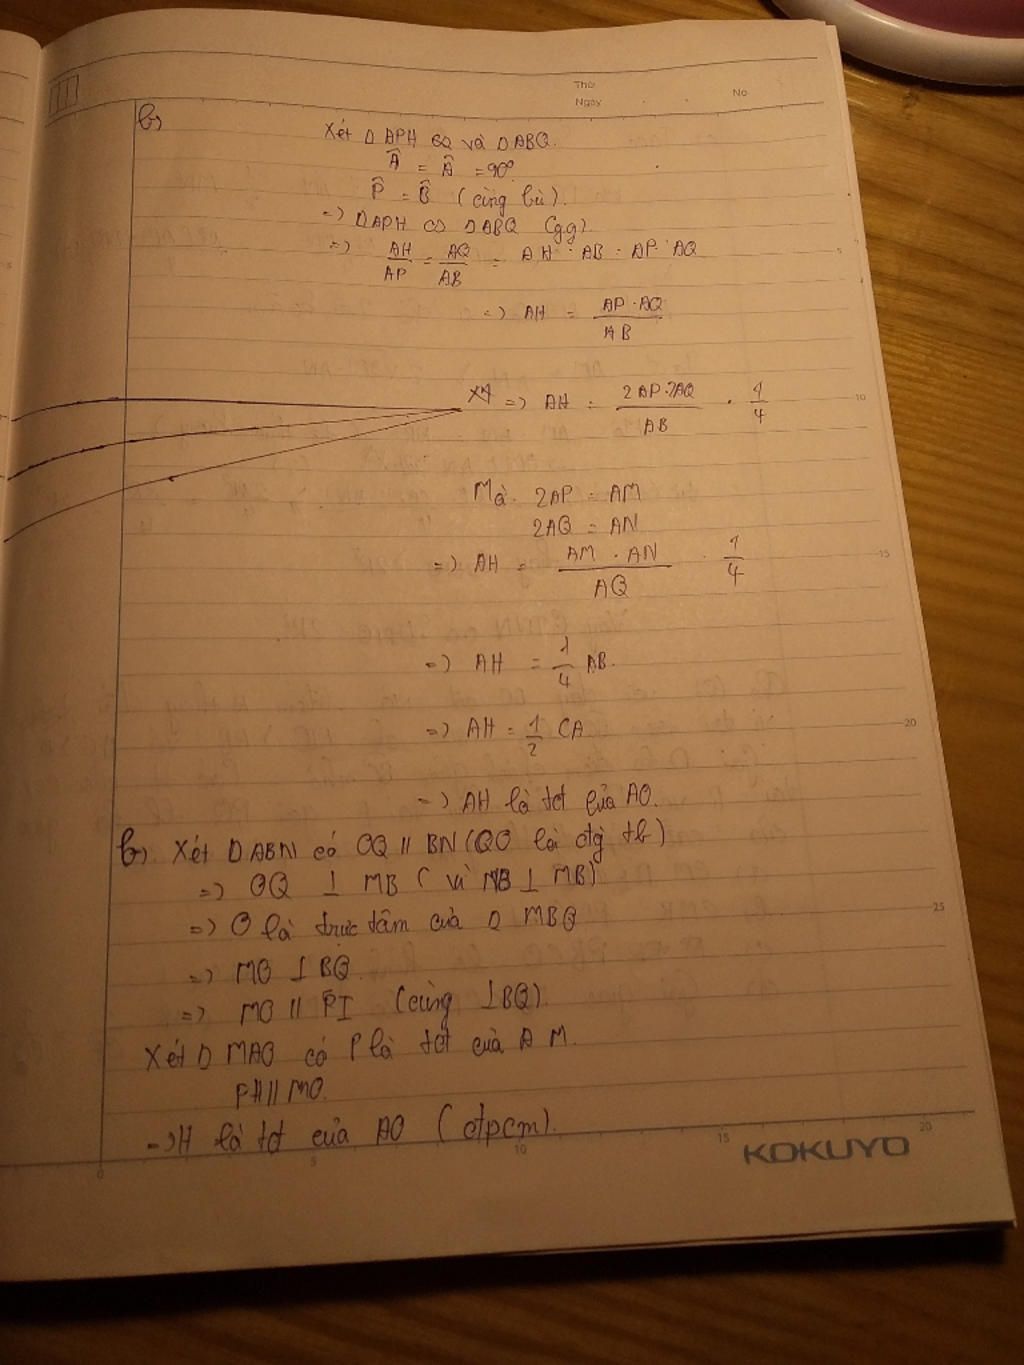 Thứ
Ngày
No
b,
Xét Δ APH và Δ ABQ.
Â = Â = 90°
P̂ = B̂ (cùng bù).
=> Δ APH ∽ Δ ABQ (gg)
=> AH/AP = AQ/AB = AH · AB = AP · AQ
=> AH = AP · AQ / AB
=> AH = 2AP · 2AQ / AB · 1/4
Mà 2AP = AM
2AQ = AN
=> AH = AM · AN / AQ · 1/4
=> AH = 1/4 AB.
=> AH = 1/2 OA
=> AH là tđ của AO.
b, Xét Δ ABN có OQ // BN (QO là đg tb)
=> OQ ⊥ MB (vì NB ⊥ MB)
=> O là trực tâm của Δ MBQ
=> MO ⊥ BQ
=> MO // PI (cùng ⊥ BQ).
Xét Δ MAO có P là tđ của AM.
PH // MO.
=> H là tđ của AO (đpcm).
5
10
15
20
25
0
5
10
15
20
KOKUYO